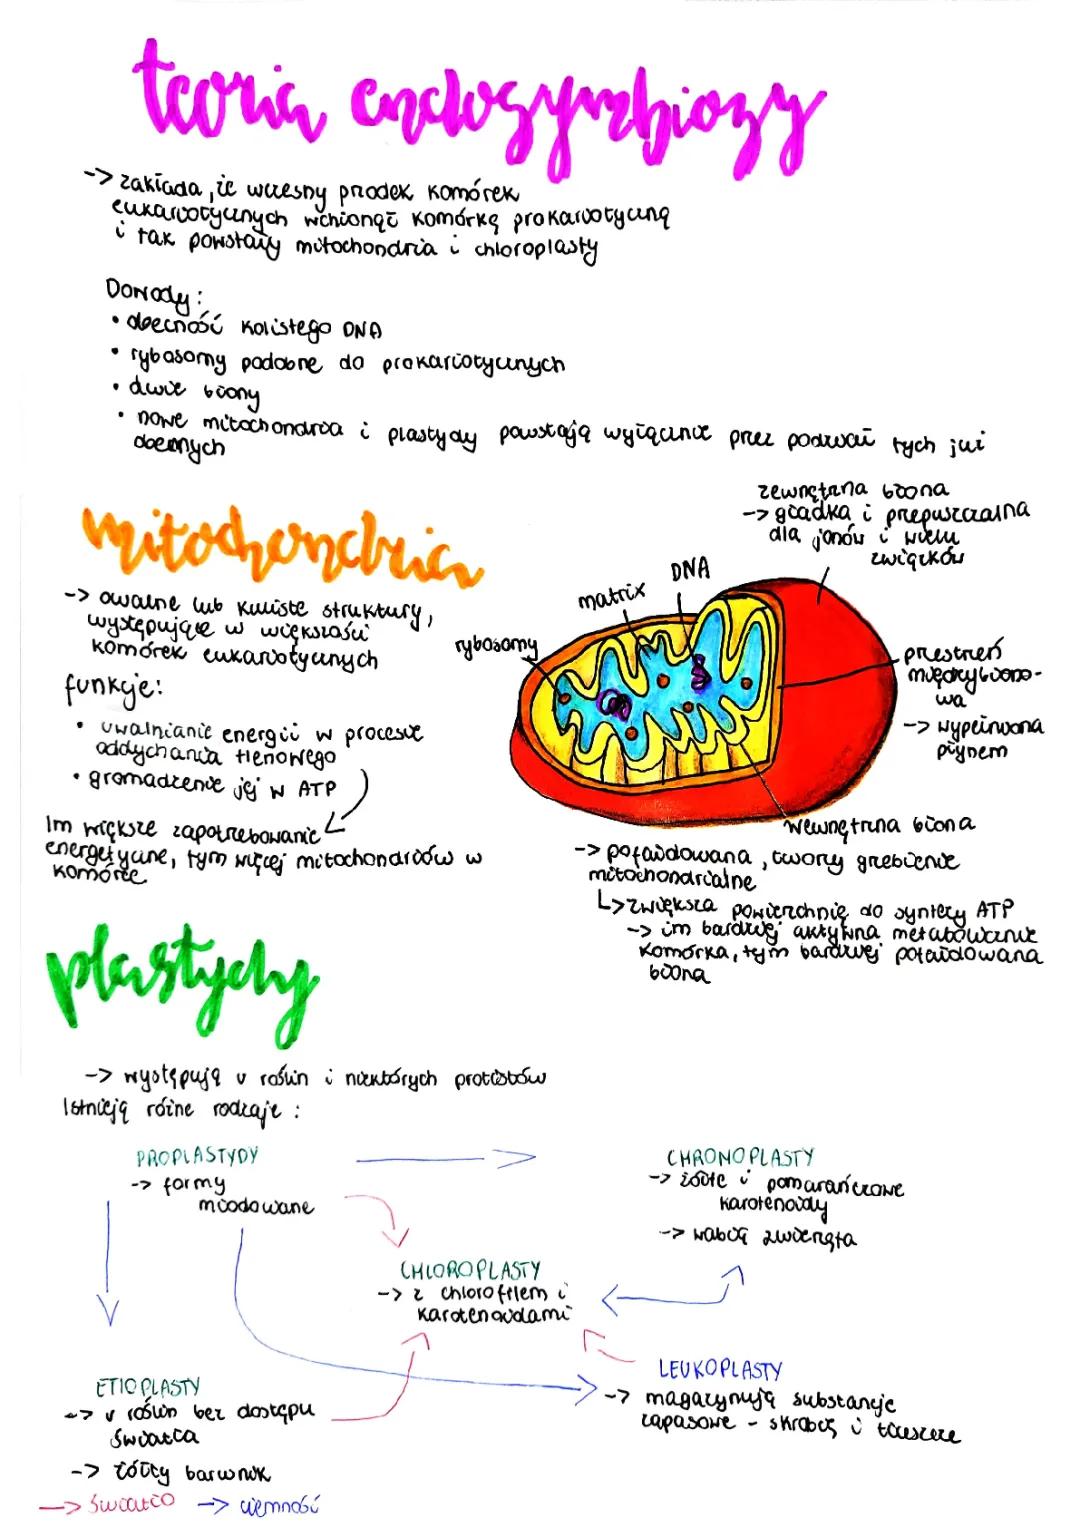 teoria endosymbiozy
-> zakłada, że wczesny przodek komórek
eukariotycznych wchłonął komórkę prokariotyczną
i tak powstały mitochondria i chloroplasty
Dowody:
• obecność kolistego DNA
• rybosomy podobne do prokariotycznych
• dwie błony
• nowe mitochondria i plastydy powstają wyłącznie przez podział tych już
obecnych
zewnętrzna błona
-> gładka i przepuszczalna
dla jonów i wielu
związków
mitochondria
-> owalne lub kuliste struktury,
występujące w większości
komórek eukariotycznych
funkcje:
• uwalnianie energii w procesie
oddychania tlenowego
• gromadzenie jej w ATP
Im większe zapotrzebowanie
energetyczne, tym więcej mitochondriów w
komórce
DNA
matrix
rybosomy
przestrzeń
międzybłono-
wa
-> wypełniona
płynem
wewnętrzna błona
-> pofałdowana, tworzy grzebienie
mitochondrialne
↳> zwiększa powierzchnię do syntezy ATP
-> im bardziej aktywna metabolicznie
komórka, tym bardziej pofałdowana
błona
plastydy
-> występują u roślin i niektórych protistów
Istnieją różne rodzaje:
PROPLASTYDY
-> formy
młodowane
CHRONOPLASTY
-> żółte i pomarańczowe
karotenoidy
-> wabią zwierzęta
CHLOROPLASTY
-> z chlorofilem i
karotenoidami
LEUKOPLASTY
-> magazynują substancje
zapasowe - skrobię i tłuszcze
ETIOPLASTY
-> u roślin bez dostępu
światła
-> żółty barwnik
-> światło -> ciemność